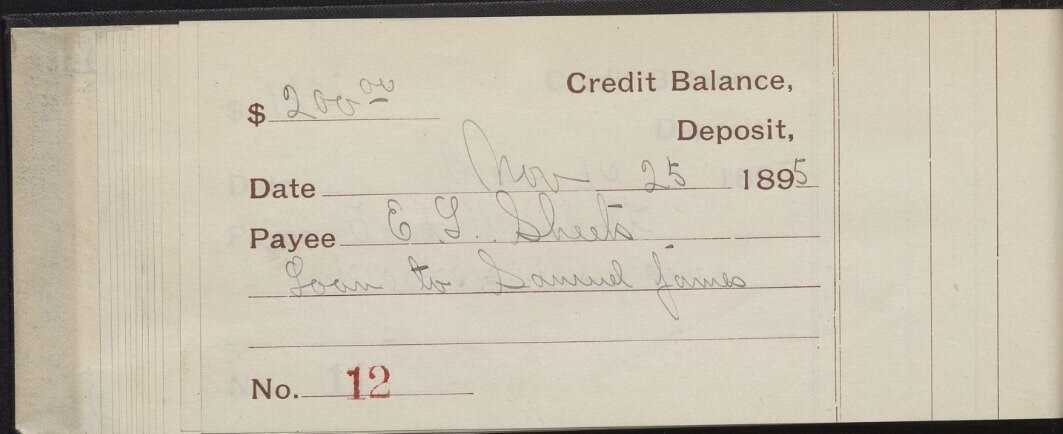 $ 200 00
Credit Balance,
Deposit,
Date Nov 25 1895
Payee E. G. Sheets
Loan to Samuel James
No. 12